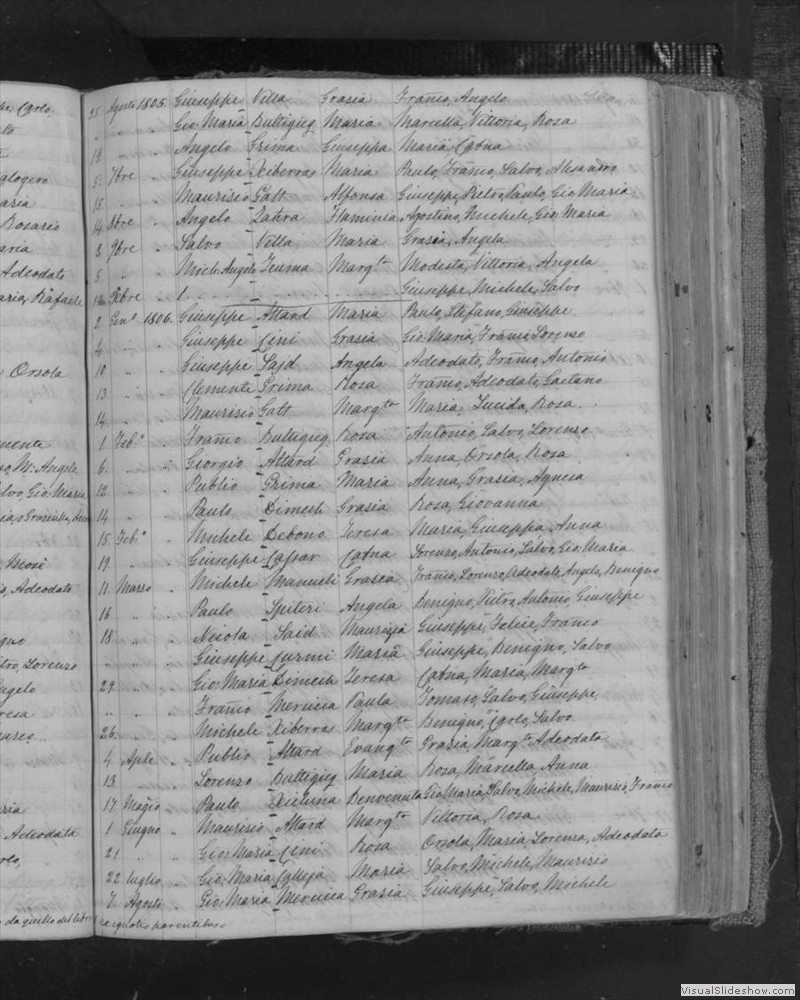 pe, Carlo
25 Agosto 1805. Giuseppe Villa Grasia Franco, Angelo
" " Gio Maria Bultigieg Maria Marcella, Vittoria, Rosa
" " Angelo Grima Giuseppa Maria, Catna
alogero 5. 7bre " Giuseppe Xiberras Maria Paulo, Franco, Salvo, Alesandro
aria 15 " " Maurisio Gatt Alfonsa Giuseppe, Pietro, Paulo, Gio Maria
Rosario 14 8bre " Angelo Zahra Flaminia Agostino, Michele, Gio Maria
aria 3 9bre " Salvo Villa Maria Grasia, Angela
Adeodato 5 " " Mich: Angelo Teuma Margta Modesta, Vittoria, Angela
aria, Rafaele Xbre Giuseppe, Michele, Salvo
2 Geno 1806. Giuseppe Attard Maria Paulo, Stefano, Giuseppe
4 " " Giuseppe Ceni Grasia Gio Maria, Franco, Lorenso
Orsola 10 " " Giuseppe Sajd Angela Adeodato, Franco, Antonio
13. " " Clemente Grima Rosa Franco, Adeodato, Gaetano
14 " " Maurisio Gatt Margta Maria, Lucida, Rosa
mente 1 Febo " Franco Bultigieg Rosa Antonio, Salvo, Lorenso
Ma Angela 6. " " Giorgio Attard Grasia Anna, Orsola, Rosa
alvo, Gio: Maria 12 " " Publio Grima Maria Anna, Grasia, Agnesa
14 " " Paulo Dimech Grasia Rosa, Giovanna
15 Febo " Michele Debono Teresa Maria, Giuseppa, Anna
19. " " Giuseppe Cassar Catna Lorenso, Antonio, Salvo, Gio: Maria
Adeodato 11 Marso " Michele Manueli Grasia Franco, Lorenso, Adeodato, Angelo, Benigno
16 " " Paulo Spiteri Angela Benigno, Pietro, Antonio, Giuseppe
gno 18 " " Nicola Said Maurizia Giuseppe, Felice, Franco
tro, Lorenzo " " " Giuseppe Curmi Maria Giuseppe, Benigno, Salvo
ngelo 29 " " Gio: Maria Dimech Teresa Catna, Maria, Margta
resa " " " Franco Mercieca Paula Tomaso, Salvo, Giuseppe
26. " " Michele Xiberras Margta Benigno, Carlo, Salvo
4 Aple " Publio Attard Evangta Grasia, Margta Adeodata
13 " " Lorenzo Bultigieg Maria Rosa, Marcella, Anna
17 Magio " Paulo Xicluna Benvenuta Gio Maria, Salvo, Michele, Maurisio, Franco
1 Giugno " Maurisio Attard Margta Vittoria, Rosa
Adeodata 21 " " Gio: Maria Ceni Rosa Orsola, Maria, Lorensa, Adeodata
22 luglio " Gio: Maria Calleja Maria Salvo, Michele, Maurisio
7 Agosto " Gio: Maria Mercieca Grasia Giuseppe, Salvo, Michele
da quello del libro
VisualSlideshow.com